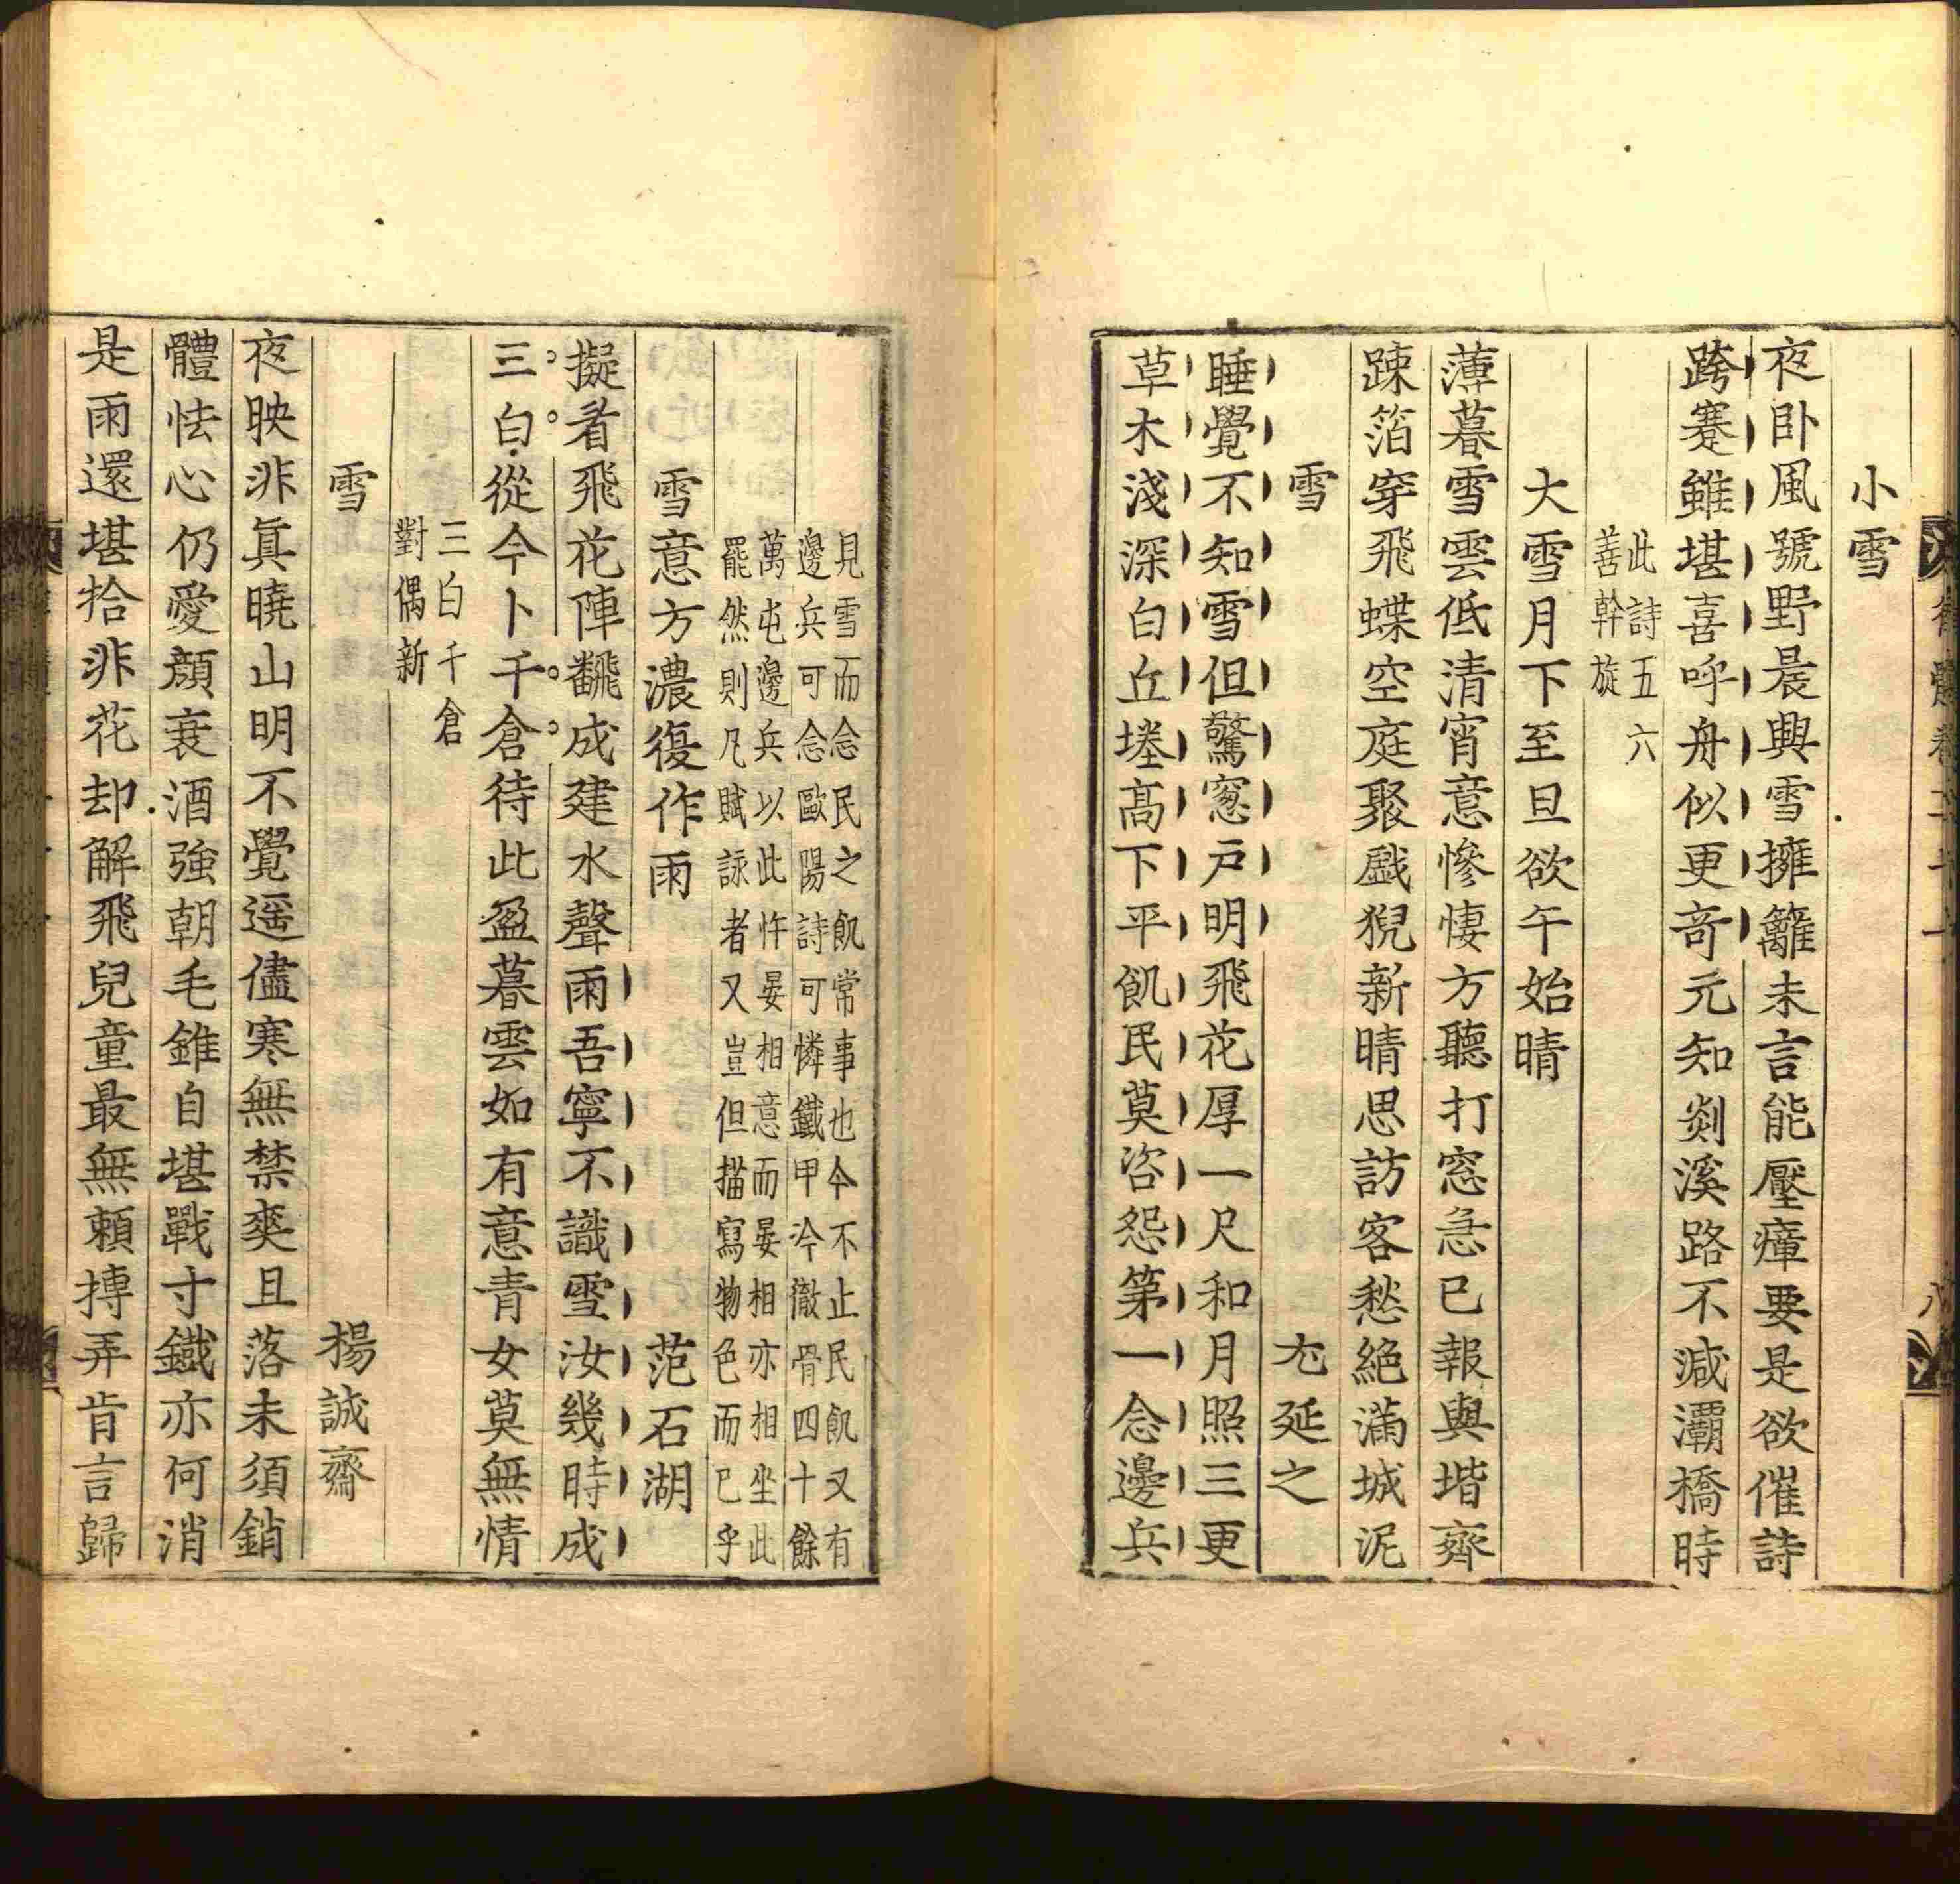 小雪
夜臥風號野晨興雪擁籬未言能壓瘴要是欲催詩
跨蹇雖堪喜呼舟似更奇元知剡溪路不減灞橋時
此詩五六
善幹旋
大雪月下至旦欲午始晴
薄暮雪雲低清宵意慘悽方聽打窓急已報與堦齊
踈箔穿飛蝶空庭聚戲猊新晴思訪客愁絕滿城泥
雪 尤延之
睡覺不知雪但驚窓戸明飛花厚一尺和月照三更
草木淺深白丘塍髙下平飢民莫咨怨第一念邊兵
見雪而念民之飢常事也今不止民飢又有
邊兵可念歐陽詩可憐鐵甲冷徹骨四十餘
萬屯邊兵以此忤晏相意而晏相亦相坐此
罷然則凡賦詠者又豈但描寫物色而已乎
雪意方濃復作雨 范石湖
擬看飛花陣飜成建水聲雨吾寧不識雪汝幾時成
三白從今卜千倉待此盈暮雲如有意青女莫無情
三白千倉
對偶新
雪 楊誠齋
夜映非眞曉山明不覺遥儘寒無禁奭且落未須銷
體怯心仍愛顔衰酒強朝毛錐自堪戰寸鐵亦何消
是雨還堪拾非花却解飛兒童最無頼摶弄肯言歸